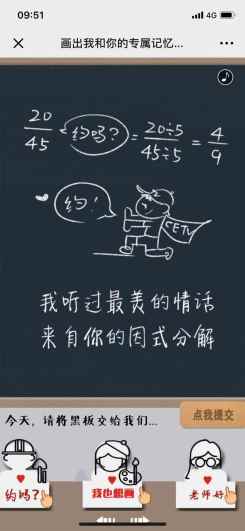 09:51
4G
画出我和你的专属记忆...
20/45 约吗? = 20÷5/45÷5 = 4/9
约!
CETV
我听过最美的情话
来自你的因式分解
今天，请将黑板交给我们...
点我提交
约吗?
我也想画
老师好